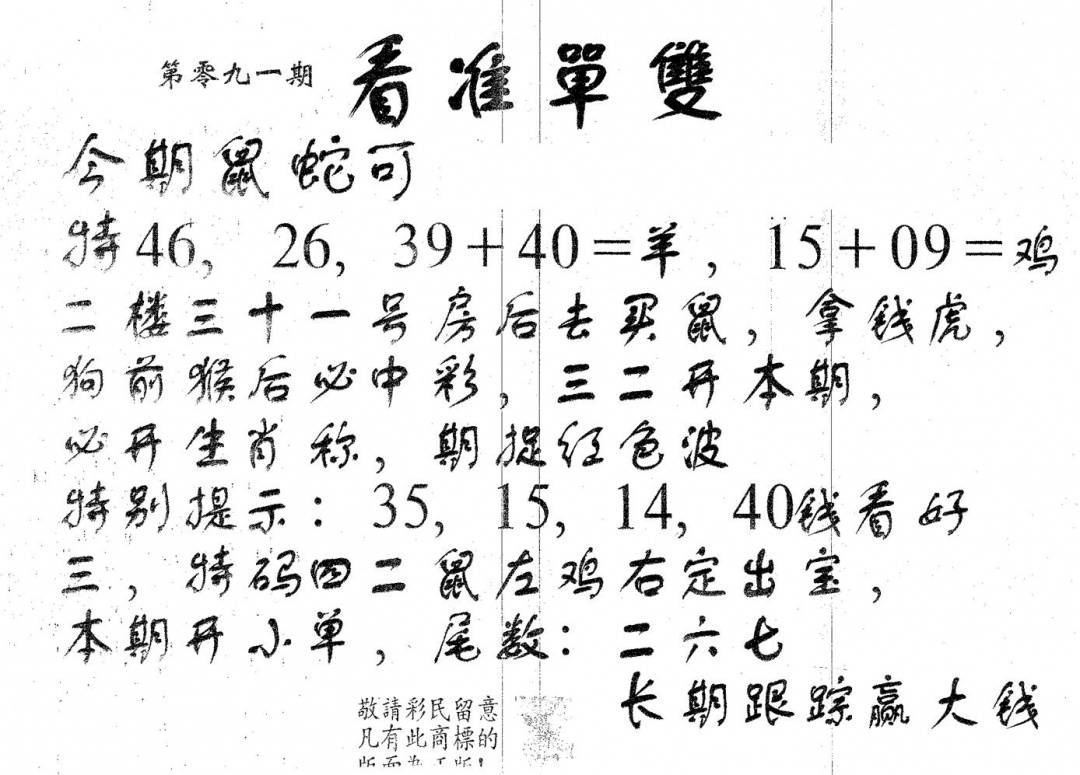 第零九一期 看准單雙
今期鼠蛇可
特46, 26, 39+40=羊, 15+09=鸡
二楼三十一号房后去买鼠, 拿钱虎,
狗前猴后必中彩, 三二开本期,
必开生肖称, 期捉红色波
特别提示: 35, 15, 14, 40钱看好
三, 特码四二鼠左鸡右定出宝,
本期开小单, 尾数: 二六七
长期跟踪赢大钱
敬請彩民留意
凡有此商標的
版面为正版!